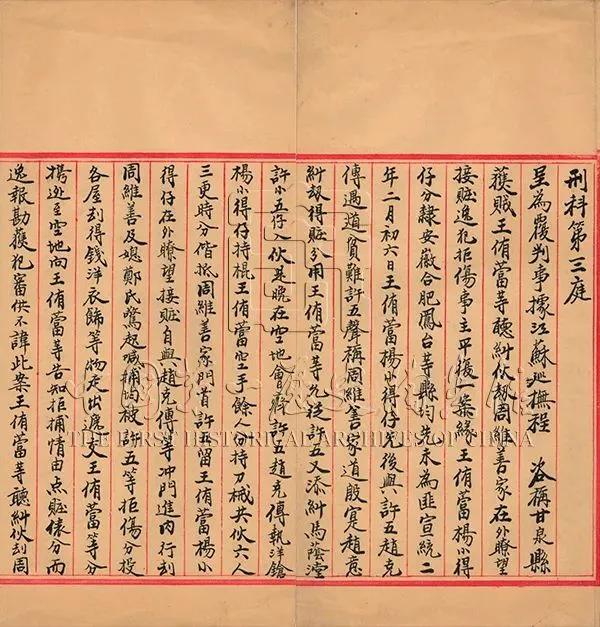 刑科第三庭
呈為覆判事據江蘇巡撫程 咨稱甘泉縣
獲賊王侑當等聽糾伙劫周維善家在外瞭望
接贓逸犯拒傷事主平復一案緣王侑當楊小得
仔分隸安徽合肥鳳台等縣均先未為匪宣統二
年二月初六日王侑當楊小得仔先後與許五趙克
傳遇道貧難許五聲稱周維善家道殷寔起意
糾刼得贓分用王侑當等允從許五又添糾馬蔭
許小五仔入伙是晚在空地會齊許五趙克傳執洋鎗
楊小得仔持棍王侑當空手餘人分持刀械共伙六人
三更時分偕抵周維善家門首許五留王侑當楊小
得仔在外瞭望接贓自與趙克傳等冲門進內行刦
周維善及媳鄭氏驚起喊捕均被許五等拒傷分投
各屋刦得錢洋衣飾等物走出遞交王侑當等分
携逃至空地向王侑當等告知拒捕情由点贓俵分而
逸報勘獲犯審供不諱此案王侑當等聽糾伙刦周
中國第一歷史檔案館
THE FIRST HISTORICAL ARCHIVES OF CHINA